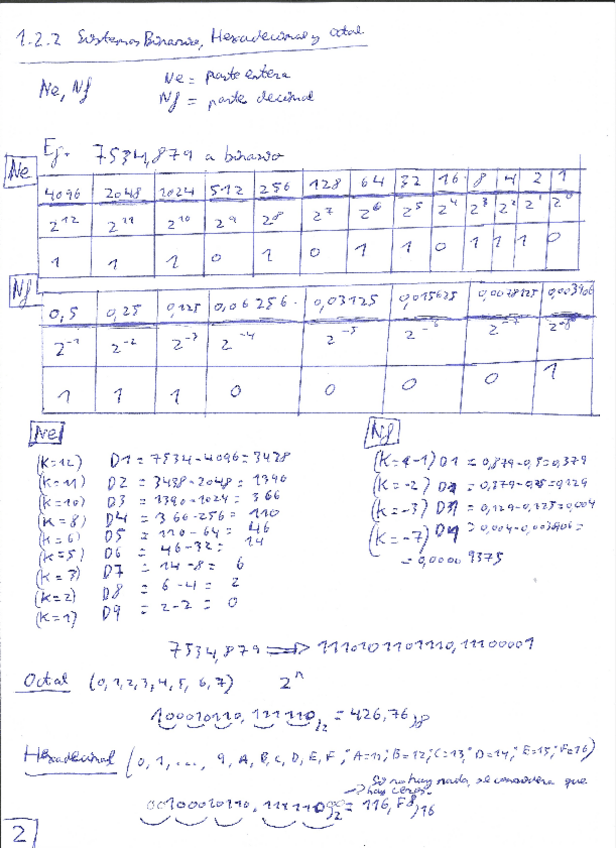 1.2.2 Sistemas Binario, Hexadecimal y octal
Ne, Nf
Ne = parte entera
Nf = parte decimal
Ej. 7534,879 a binario
Ne
4096 2048 1024 512 256 128 64 32 16 8 4 2 1
2^12 2^11 2^10 2^9 2^8 2^7 2^6 2^5 2^4 2^3 2^2 2^1 2^0
1 1 1 0 1 0 1 1 0 1 1 1 0
Nf
0,5 0,25 0,125 0,06256 0,03125 0,015625 0,0078125 0,003906
2^-1 2^-2 2^-3 2^-4 2^-5 2^-6 2^-7 2^-8
1 1 1 0 0 0 0 1
Ne
(K=12) D1 = 7534-4096=3438
(K=11) D2 = 3438-2048=1390
(K=10) D3 = 1390-1024=366
(K=8) D4 = 366-256=110
(K=6) D5 = 110-64= 46
(K=5) D6 = 46-32= 14
(K=3) D7 = 14-8= 6
(K=2) D8 = 6-4= 2
(K=1) D9 = 2-2= 0
Nf
(K=-1) D1 = 0,879-0,5=0,379
(K=-2) = 0,379-0,25=0,129
(K=-3) = 0,129-0,125=0,004
(K=-7) = 0,004-0,003906=
= 0,00009375
7534,879 ⇒ 1110101101110,11100001
Octal (0,1,2,3,4,5,6,7) 2^n
100010110,111110)2 = 426,76)8
Hexadecimal (0,1,...., 9, A, B, C, D, E, F, "A=11, B=12, C=13, D=14, E=15, F=16)
Si no hay nada, se considera que
→ hay ceros.
00100010110,11111000)2 = 116,F8)16
2